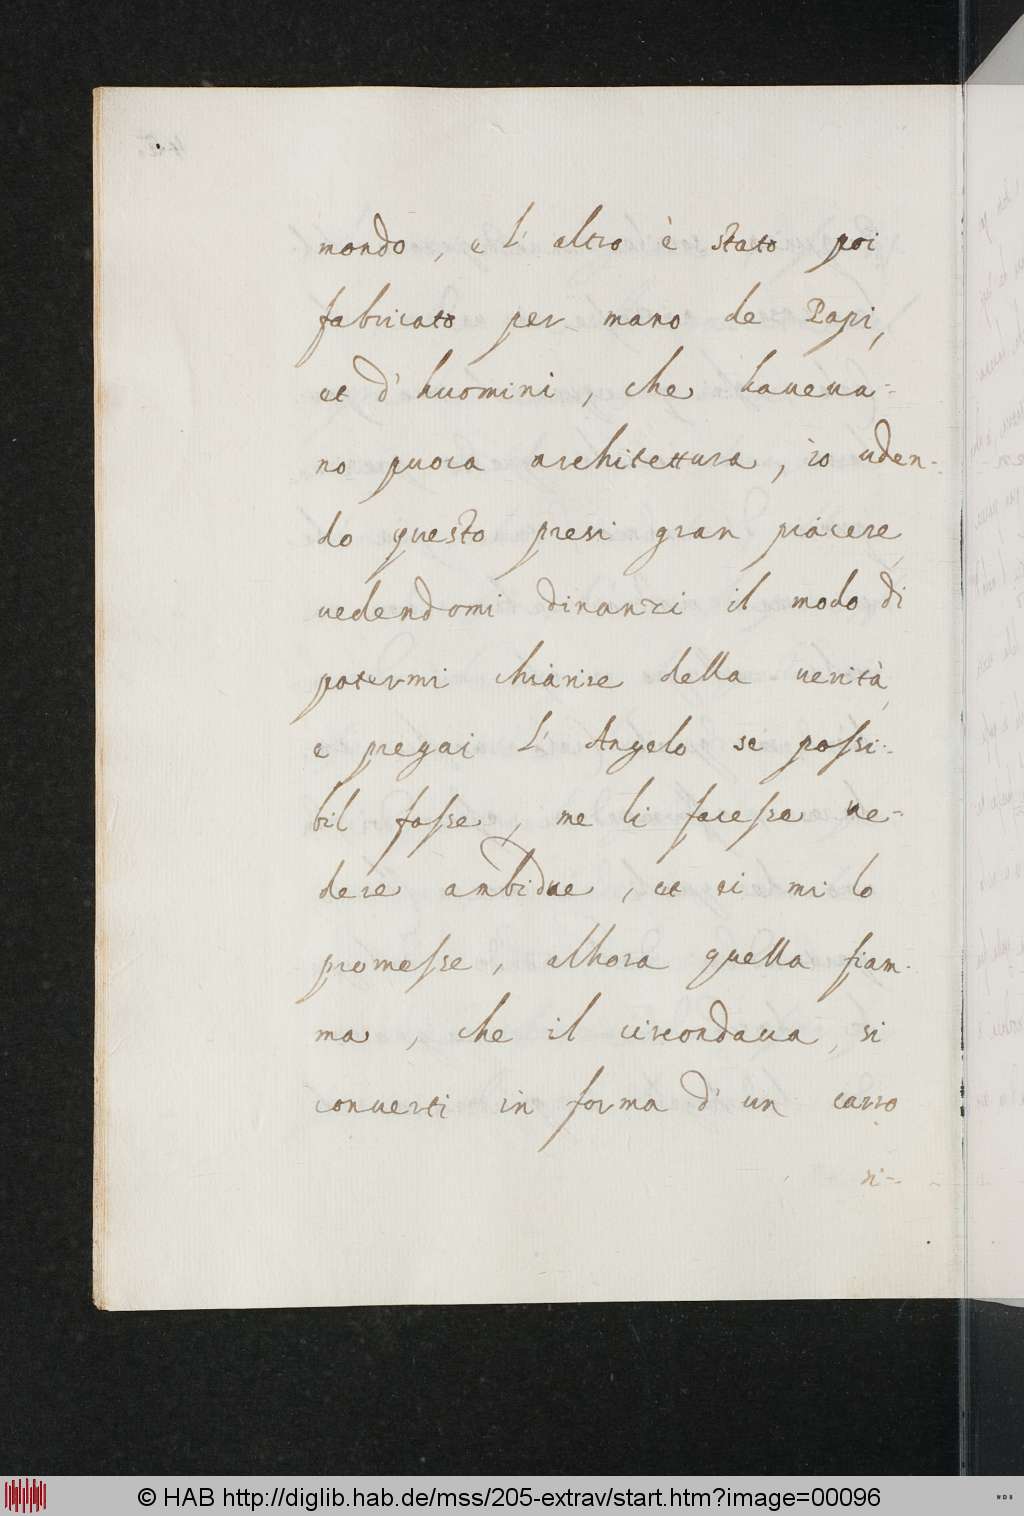 mondo, e l' altro è stato poi
fabricato per mano de Papi,
et d' huomini, che haueua-
no puoca architettura, io uden-
do questo presi gran piacere
uedendomi dinanzi il modo di
potermi chiarire della uerità,
e pregai l' Angelo se possi-
bil fosse, me li facesse ue-
dere ambidue, et ei mi lo
promesse, alhora quella fiam-
ma, che il circondaua, si
conuerti in forma d' un carro
ri-
© HAB http://diglib.hab.de/mss/205-extrav/start.htm?image=00096